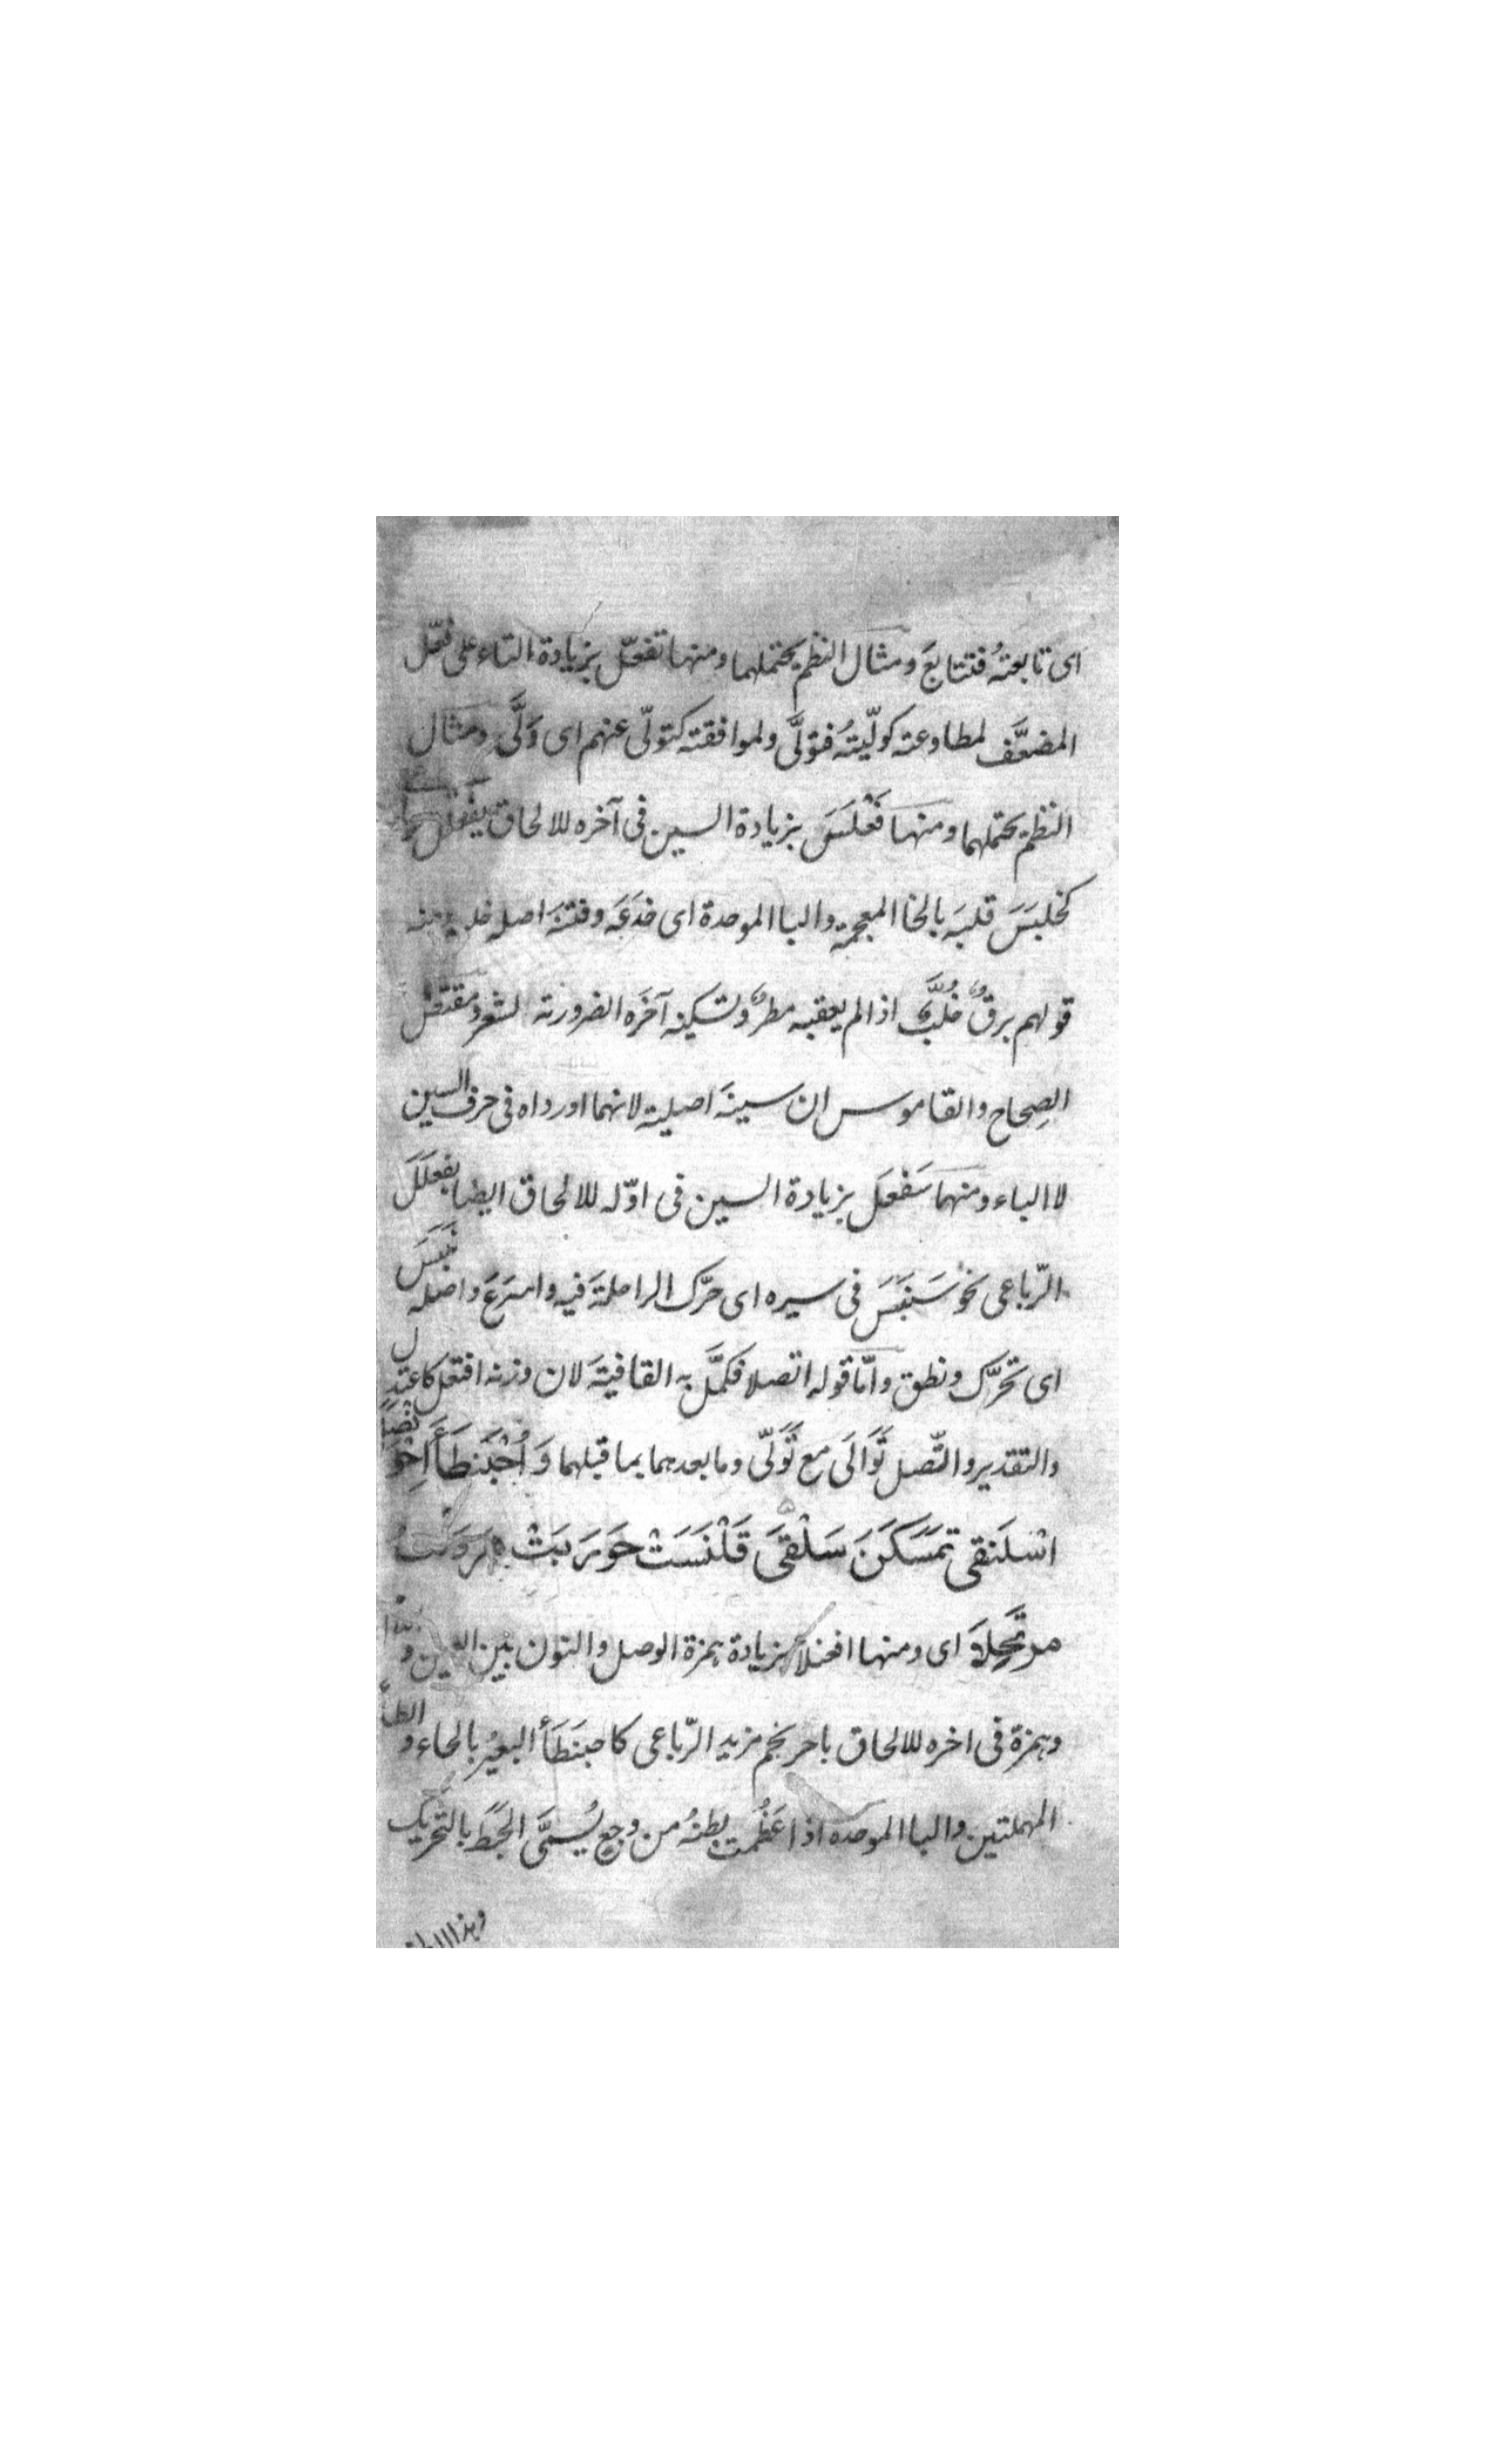 اى تابعتهُ فتتابعَ ومثال النظم يحتملهما ومنها تفعّل بزيادة التاء على فعّل
المضعَّف لمطاوعته كولّيتهُ فتولَّى ولموافقته كتولّى عنهم اى وَلَّى ومثال
النظم يحتملهما ومنها فَعْلَسَ بزيادة السين فى آخره للالحاق بفعلل
كخلبَسَ قلبَه بالخا المعجمة والبا الموحدة اى خدَعَه وفتنَه اصله خلب ومنه
قولهم برقٌ خُلَّبٌ اذا لم يعقبه مطرٌ وتسكينه آخرَه لضرورته الشعر ومقتضى
الصِحاح والقاموس ان سينَه اصلية لانهما اورداه فى حرف السين
لا الباء ومنهما سَفْعَل بزيادة السين فى اوّله للالحاق ايضا بفَعلَلَ
الرّباعى نحو سَنبَسَ فى سيره اى حرَّك الراحلةَ فيه واسرَعَ واصله نَبَسَ
اى تحرَّك ونطق وامّا قوله اتصلا فكمَّل به القافيةَ لان وزنه افتعل كاعتدل
والتقدير والتّصل تَوَالَى مع تَوَلّى وما بعدهما بما قبلهما وَاحْبَنطَأَ احْوَنْصَلَ
اسْلَنقى تمَسْكَنَ سَلْقَى قَلْنَسَتْ جَوْرَبَتْ هَرْوَلَتْ
مرتَحِلَة اى ومنها افعنلأ بزيادة همزة الوصل والنون بين العين و
وهمزة فى اخره للالحاق باحرنجم مزيد الرّباعى كاحبنَطَأَ البعيُر بالحاء والطا
المهملتين والبا الموحده اذا عَظُمت بطنهُ من وجعٍ يُسمَّى الحَبَط بالتحريك